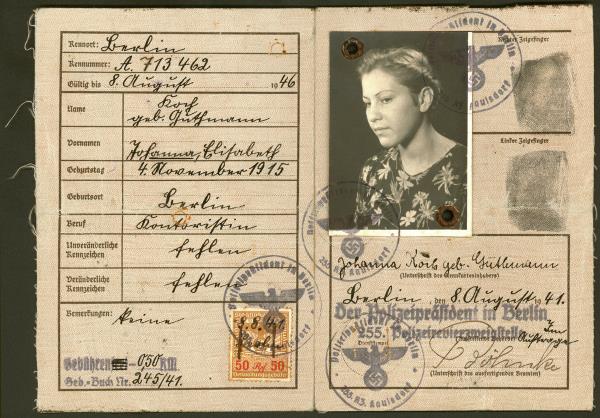 Kennort: Berlin
Kennummer: A 713462
Gültig bis 8. August 1946
Name Koch
geb. Guthmann
Vornamen Johanna, Elisabeth
Geburtstag 4. November 1915
Geburtsort Berlin
Beruf Kontoristin
Unveränderliche Kennzeichen fehlen
Veränderliche Kennzeichen fehlen
Bemerkungen: keine
8.8.41
50 Rpf 50
Verwaltungsgebühr
Gebühren -050 RM
Geb.-Buch Nr. 245/41.
Rechter Zeigefinger
Linker Zeigefinger
Johanna Koch geb. Guthmann
(Unterschrift des Kennkarteninhabers)
Berlin, den 8. August 1941.
Der Polizeipräsident in Berlin
Polizeirevierzweigstelle
255.
Dienststempel
Im Auftrage
(Unterschrift des ausfertigenden Beamten)
Polizeipräsident in Berlin
255. R3. Kaulsdorf